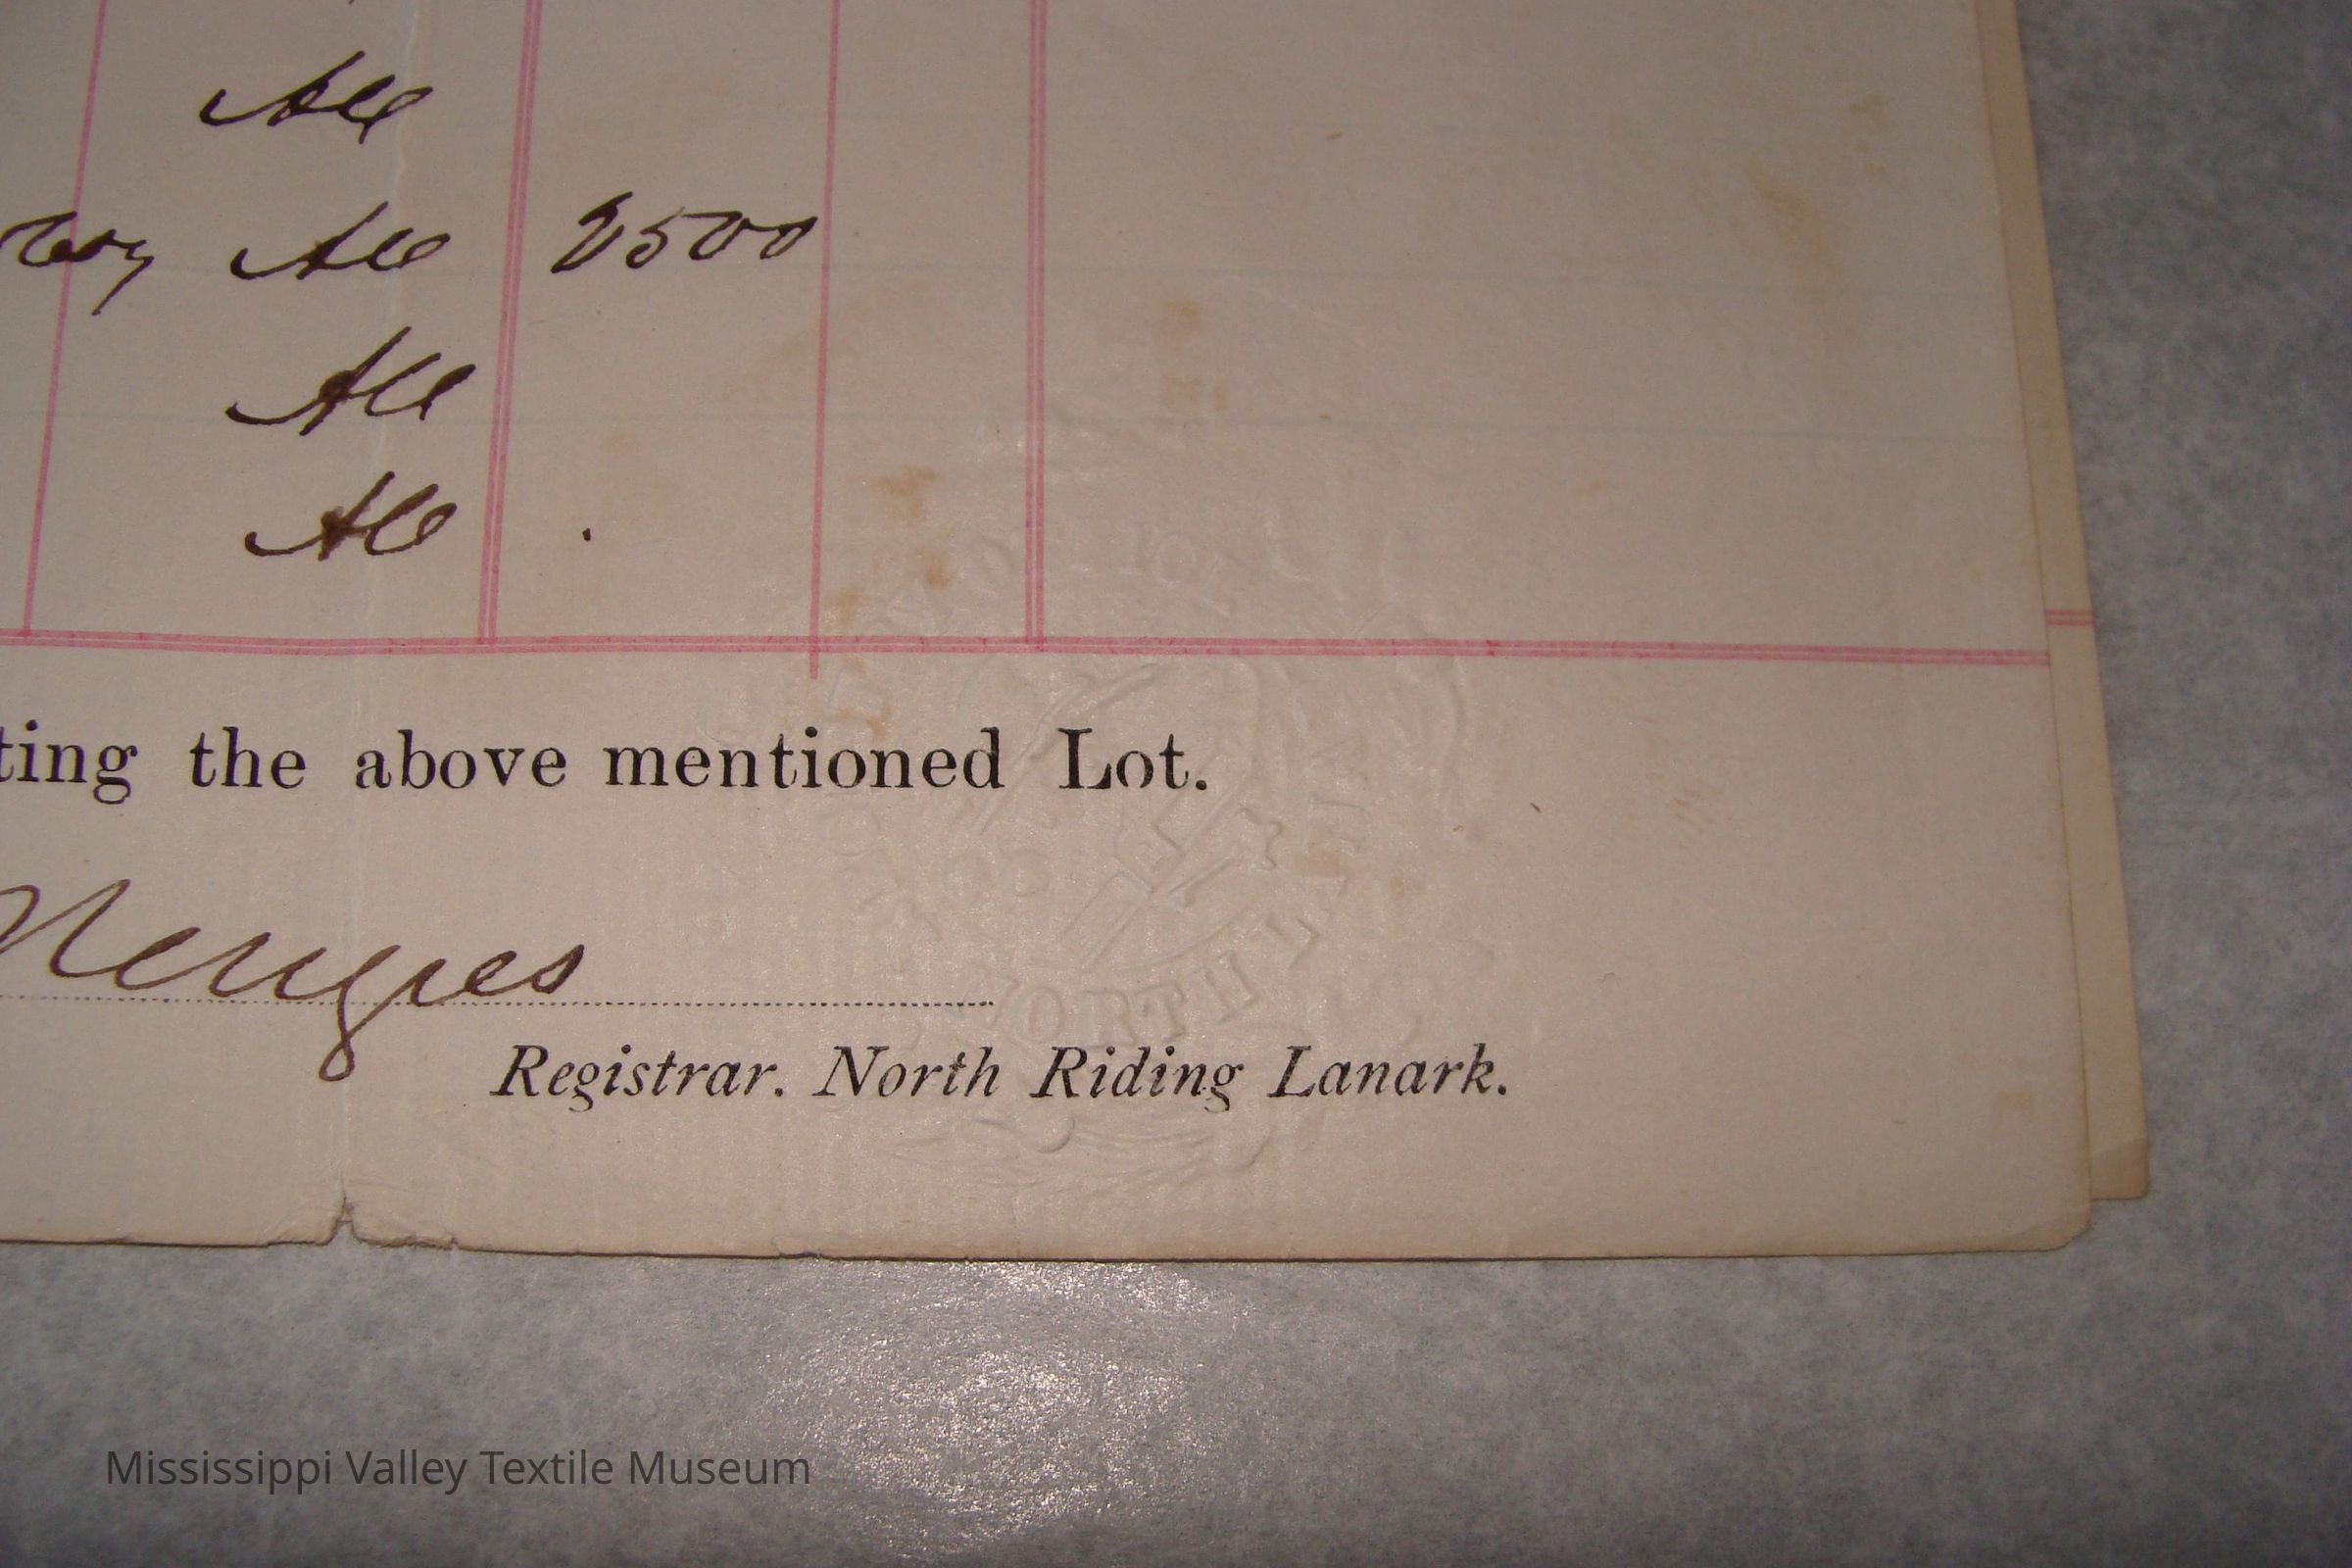 All
All 2500
All
All
ting the above mentioned Lot.
Menzies
Registrar. North Riding Lanark.
NORTH
Mississippi Valley Textile Museum